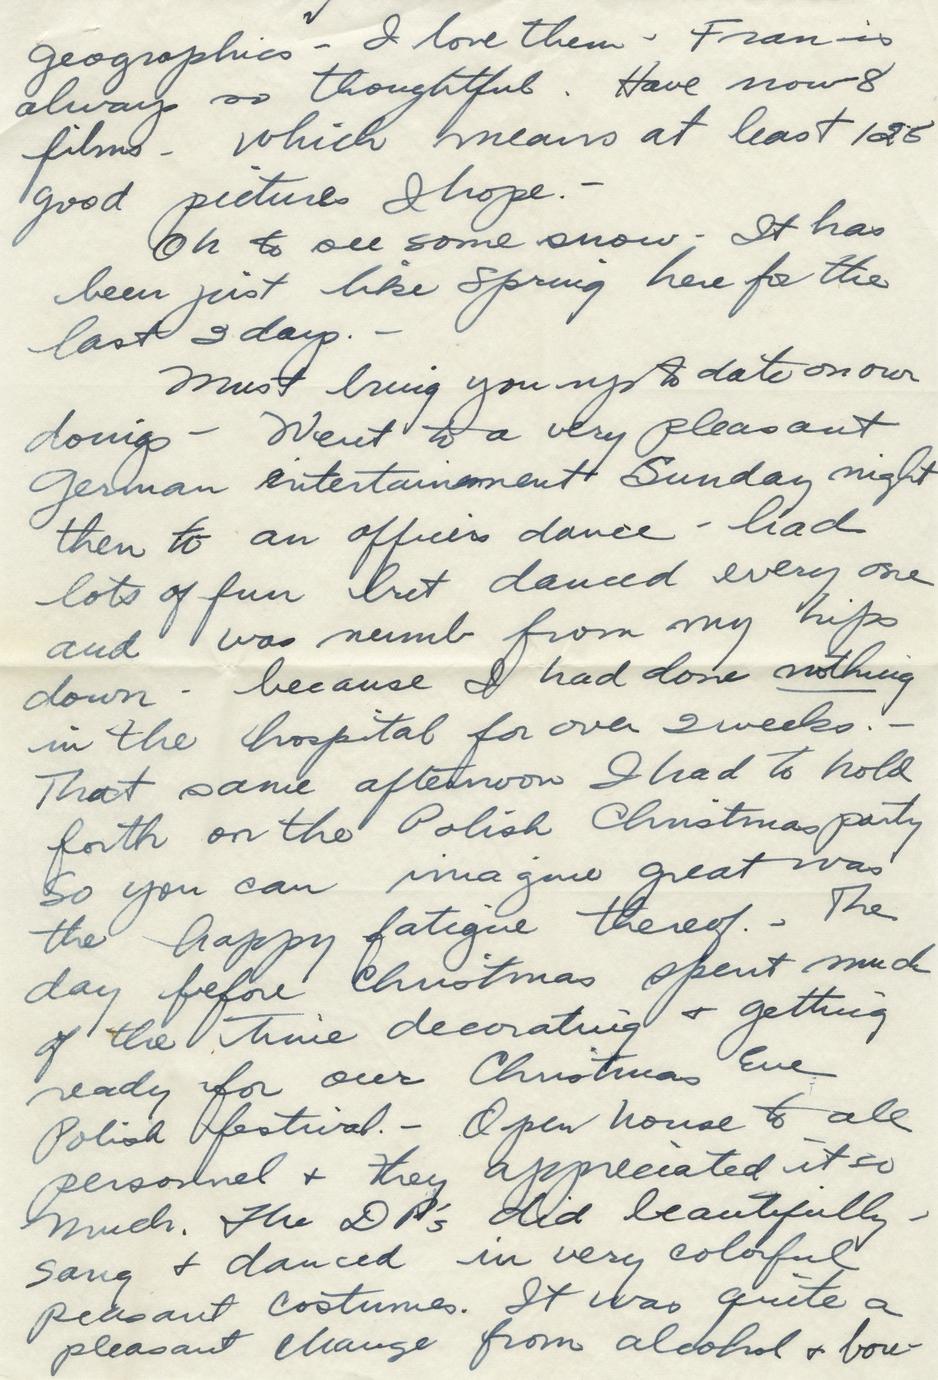 geographics - I love them - Fran is
always so thoughtful. Have now 8
films - which means at least 125
good pictures I hope. -
Oh to see some snow - It has
been just like Spring here for the
last 3 days. -
Must bring you up to date on our
doings - Went to a very pleasant
German entertainment Sunday night
then to an officers dance - had
lots of fun but danced every one
and was numb from my hips
down - because I had done nothing
in the hospital for over 2 weeks. -
That same afternoon I had to hold
forth on the Polish Christmas party
So you can imagine great was
the happy fatigue thereof. - The
day before Christmas spent much
of the time decorating & getting
ready for our Christmas Eve
Polish festival. - Open house to all
personnel & they appreciated it so
much. The DP's did beautifully -
sang & danced in very colorful
peasant costumes. It was quite a
pleasant change from alcohol &